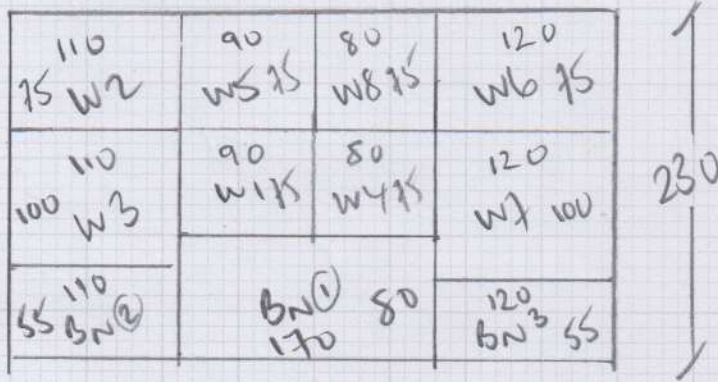 110
75 W2
90
W5 75
80
W8 75
120
W6 75
110
100 W3
90
W1 75
80
W4 75
120
W7 100
230
110
55 BN②
BN① 80
170
120
BN3 55